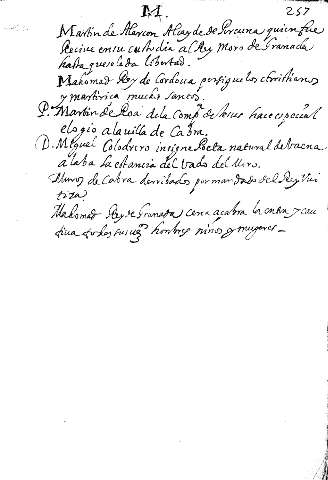 M.
257
Martin de Alarcon Alcayde de Porcuna quien fue
Recive en su custodia al Rey Moro de Granada
hasta que se le da libertad.
Mahomad Rey de Cordova persigue los christianos
y martiriça muchos santos.
P. Martin de Roa de la Compª de Iesus hace especial
elogio a la villa de Cabra.
D. Miguel Colodrero insigne Poeta natural de Vaena
alaba la estancia del Vado del Moro.
Muros de Cabra derribados por mandado del Rey Vui
tiza
Mahomad Rey de Granada cerca a Cabra la entra y cau
tiva todos sus hombres niños y mugeres